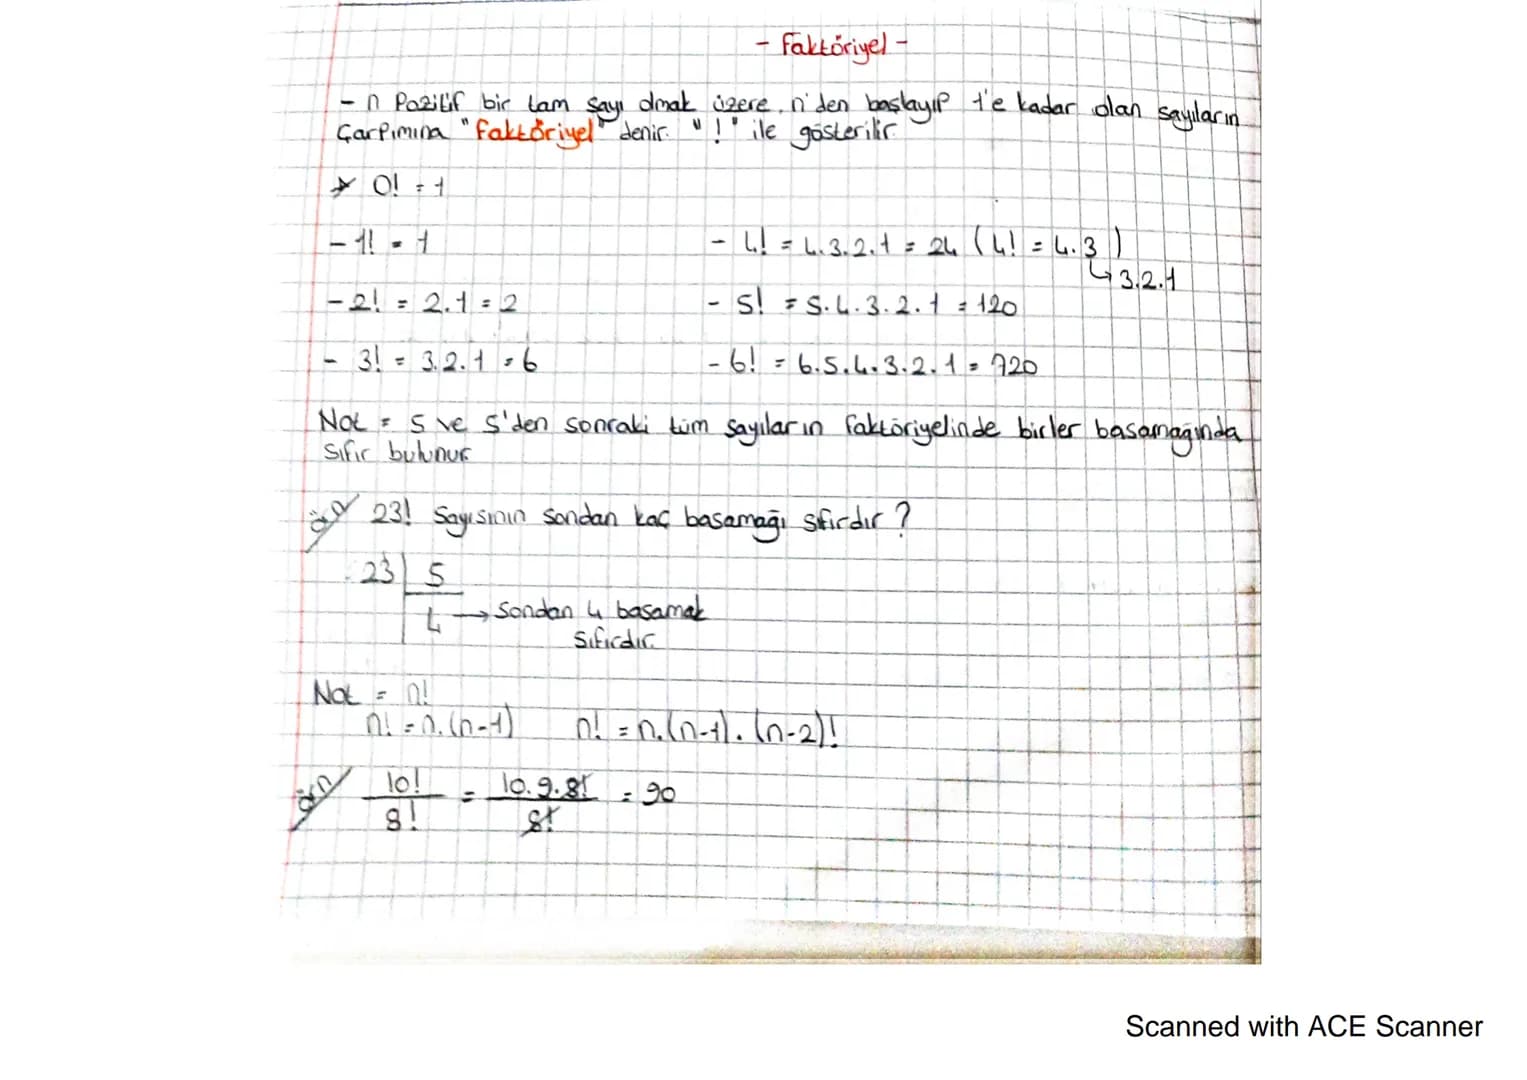 - Faktöriyel -
- n Pozitif bir tam sayı olmak üzere, n'den başlayıp 1'e kadar olan sayıların
Çarpımına "Faktöriyel" denir. "!" ile gösterilir
* 0! = 1
- 1! = 1
- 2! = 2.1 = 2
- 3! = 3.2.1 = 6
- 4! = 4.3.2.1 = 24 (4! = 4.3)
↳ 3.2.1
- 5! = 5.4.3.2.1 = 120
- 6! = 6.5.4.3.2.1 = 720
Not = 5 ve 5'den sonraki tüm sayıların faktöriyelinde birler basamağında
sıfır bulunur
örn 23! Sayısının sondan kaç basamağı sıfırdır?
23 | 5
4 → Sondan 4 basamak
sıfırdır.
Not = n!
n! = n.(n-1) n! = n.(n-1).(n-2)!
örn 10! / 8! = 10.9.8! / 8! = 90
Scanned with ACE Scanner